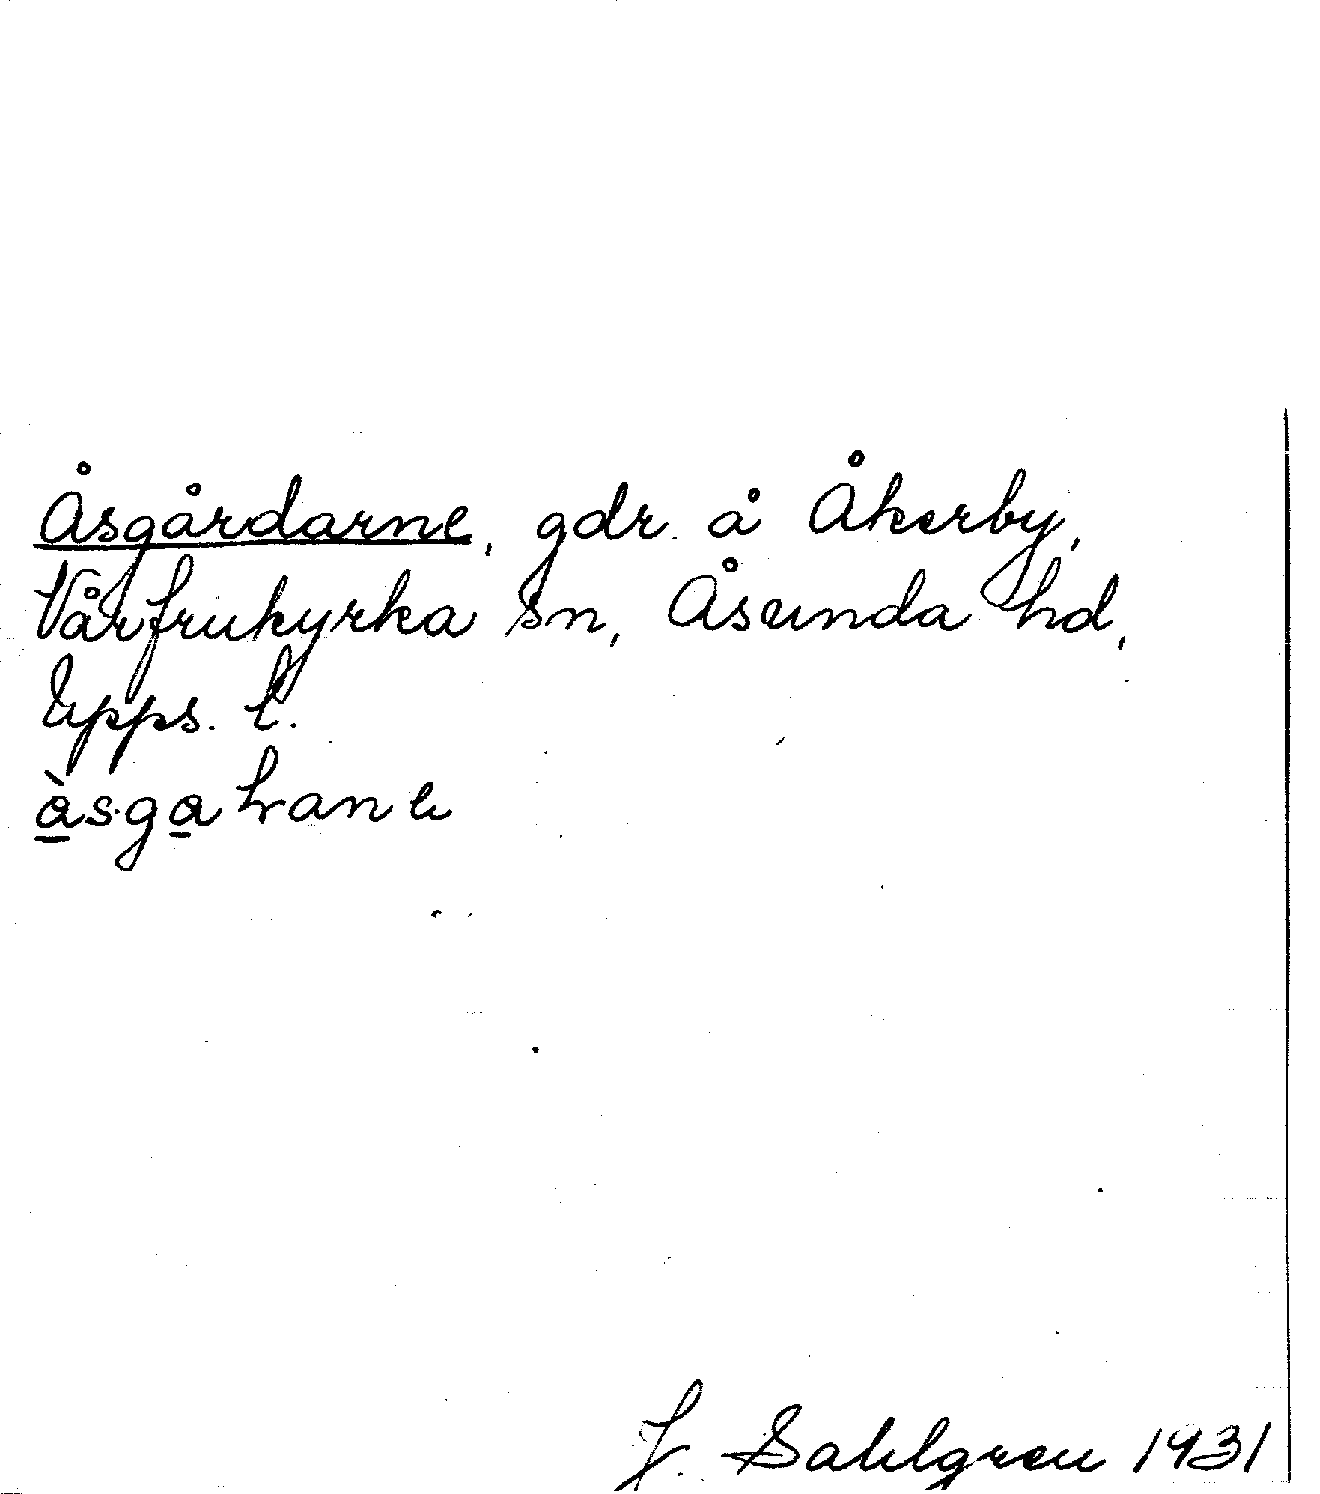 Åsgårdarne, gdr. å Åkerby,
Vårfrukyrka sn, Åsunda hd,
Upps. l.
J. Sahlgren 1931